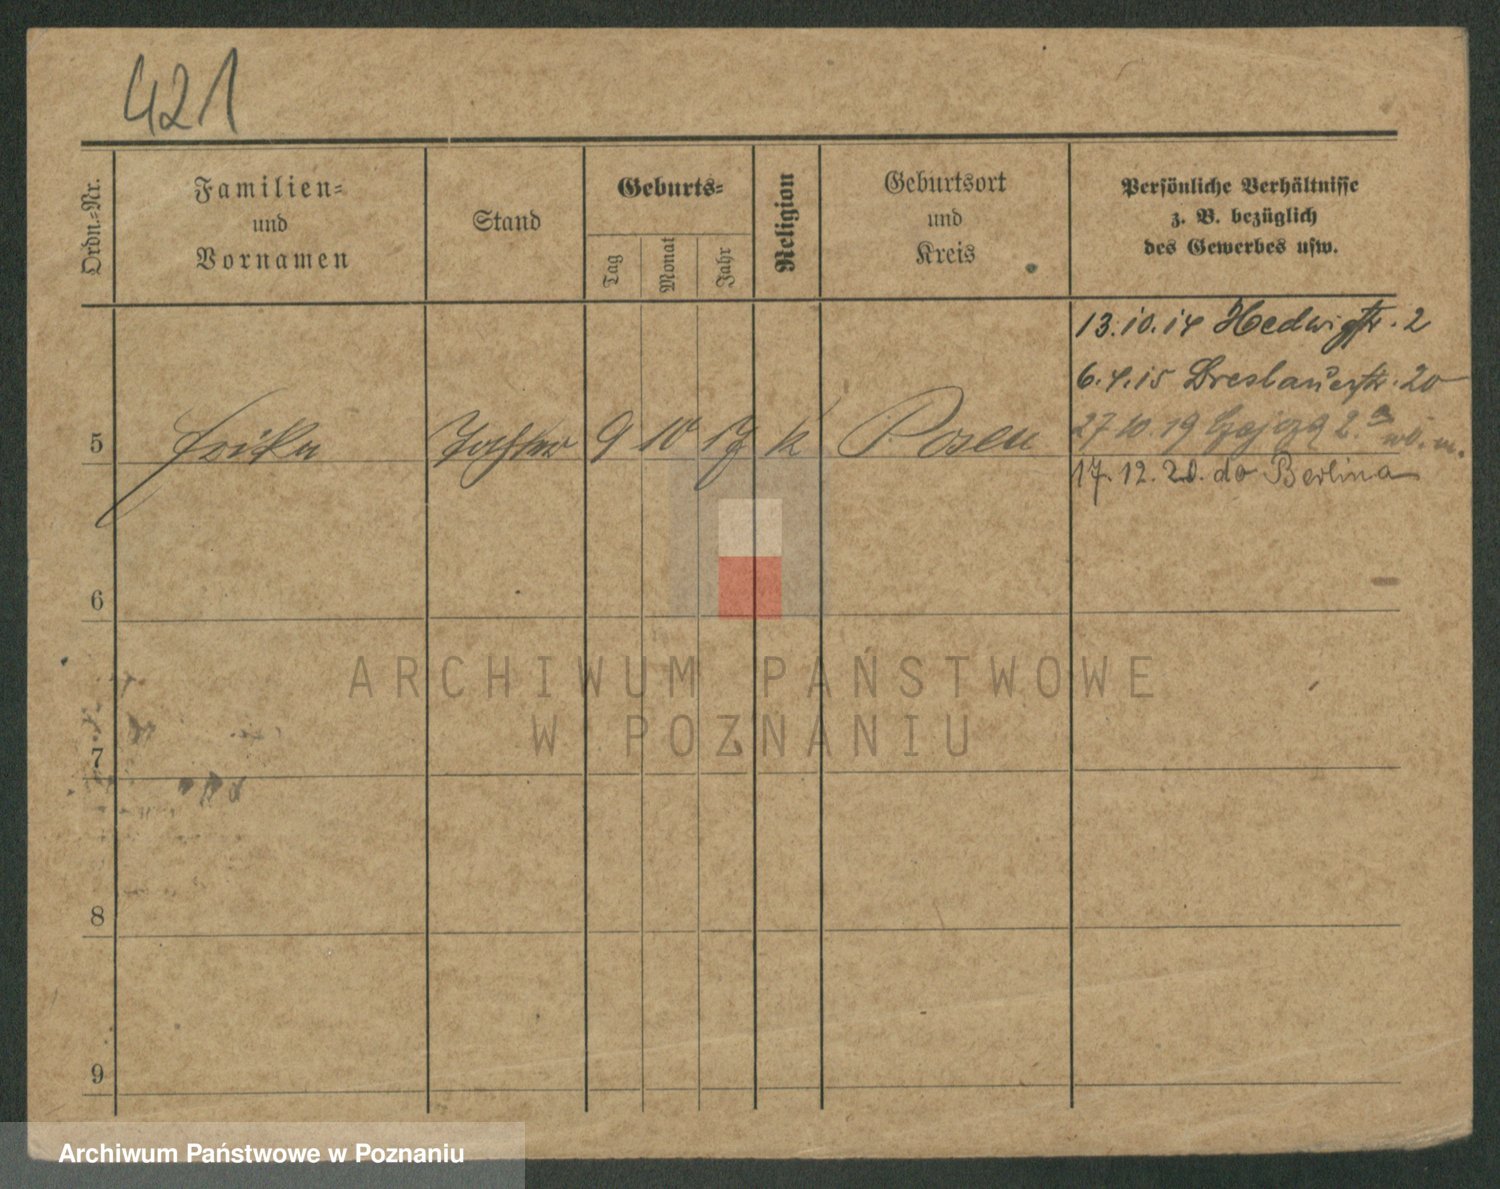 421
Ordn.=Nr.
Familien=
und
Vornamen
Stand
Geburts=
Tag
Monat
Jahr
Religion
Geburtsort
und
Kreis
Persönliche Verhältnisse
z. B. bezüglich
des Gewerbes usw.
13.10.14 Hedwigstr. 2
6.4.15 Breslauerstr. 20
27 10 19
5 Erika Tochter 9 10 17 k Posen
17. 12. 20. do Berlina
6
7
8
9
ARCHIWUM PAŃSTWOWE
W POZNANIU
Archiwum Państwowe w Poznaniu